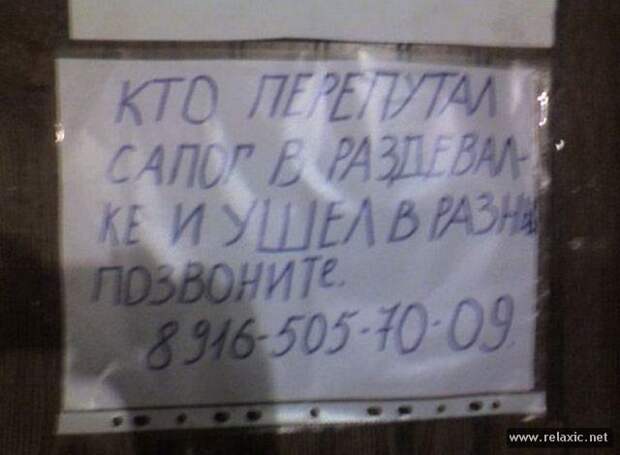 КТО ПЕРЕПУТАЛ
САПОГ В РАЗДЕВАЛ-
КЕ И УШЕЛ В РАЗНЫХ
ПОЗВОНИТЕ.
8916-505-70-09.
www.relaxic.net